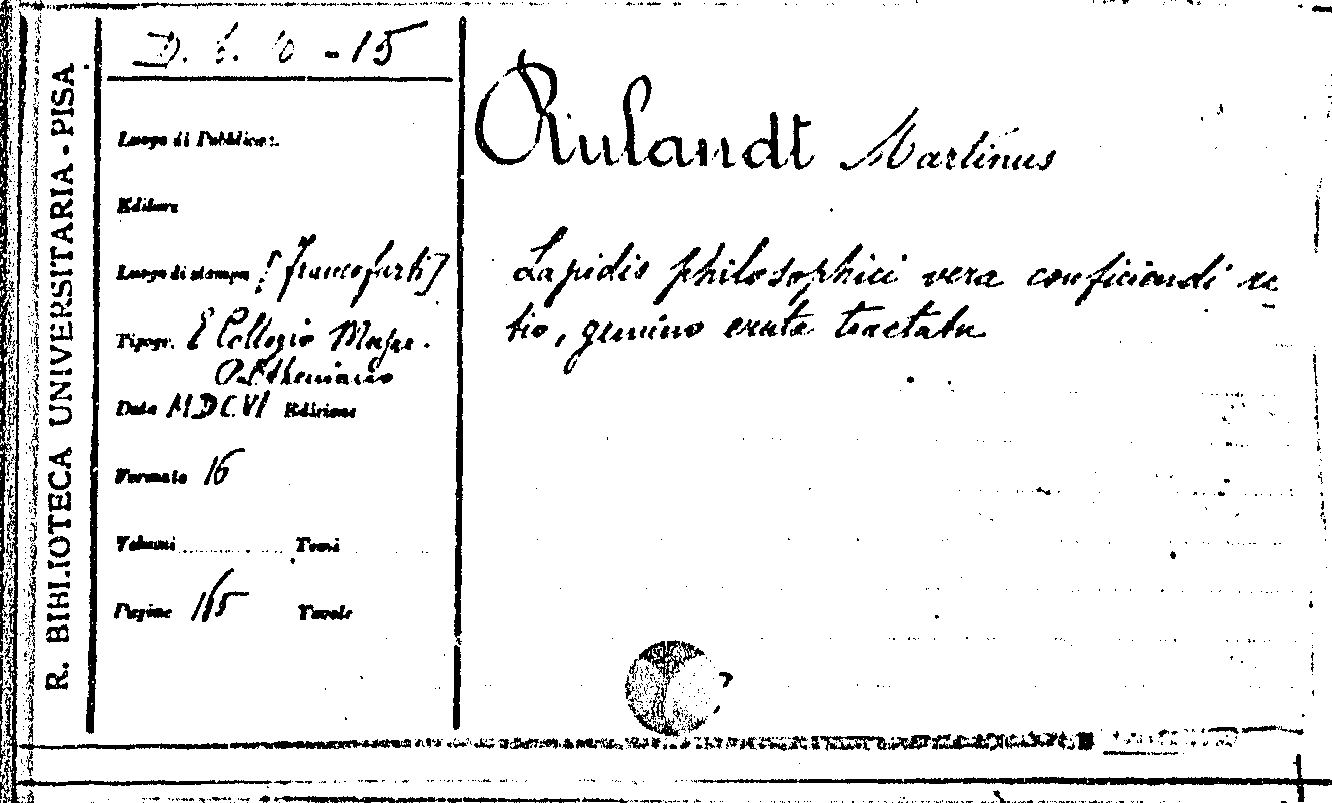 R. BIBLIOTECA UNIVERSITARIA - PISA
D. 6. 10 - 15
Luogo di Pubblicaz.
Editore
Luogo di stampa [Francofurti]
Tipogr. E Collegio Musar.
Paltheniano
Data MDCVI Edizione
Formato 16
Volumi Tomi
Pagine 165 Tavole
Rulandt Martinus
Lapidis philosophici vera conficiendi ra
tio, gemino eruta tractatu